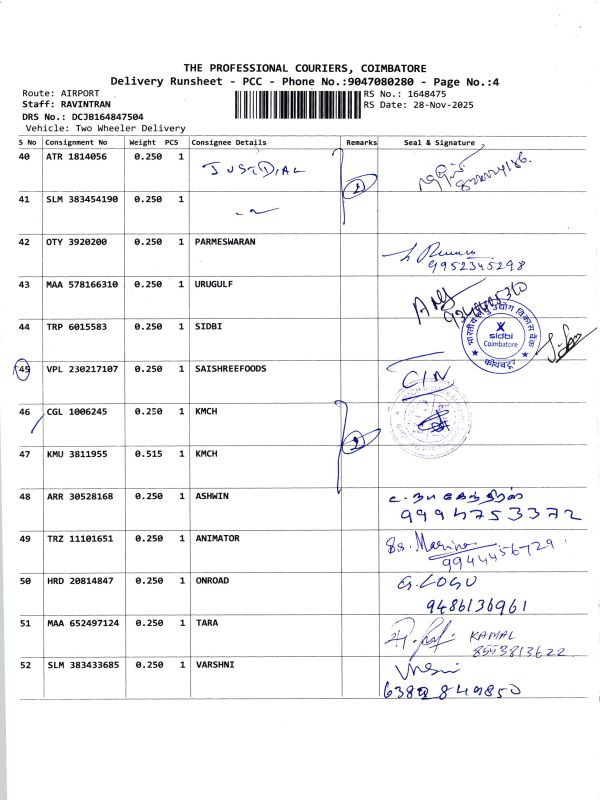 THE PROFESSIONAL COURIERS, COIMBATORE
Delivery Runsheet - PCC - Phone No.:9047080280 - Page No.:4
Route: AIRPORT
Staff: RAVINTRAN
DRS No.: DCJB164847504
Vehicle: Two Wheeler Delivery
RS No.: 1648475
RS Date: 28-Nov-2025
S No Consignment No Weight PCS Consignee Details Remarks Seal & Signature
40 ATR 1814056 0.250 1 JUSTDIAL 2
41 SLM 383454190 0.250 1
42 OTY 3920200 0.250 1 PARMESWARAN
9952345298
43 MAA 578166310 0.250 1 URUGULF
44 TRP 6015583 0.250 1 SIDBI
भारतीय लघु उद्योग विकास बैंक
sidbi
Coimbatore
कोयंबटूर
45 VPL 230217107 0.250 1 SAISHREEFOODS C/N
46 CGL 1006245 0.250 1 KMCH 2
47 KMU 3811955 0.515 1 KMCH
48 ARR 30528168 0.250 1 ASHWIN
9994753372
49 TRZ 11101651 0.250 1 ANIMATOR
9944456729
50 HRD 20814847 0.250 1 ONROAD G. LOGU
9486136961
51 MAA 652497124 0.250 1 TARA KAMAL
8553813622
52 SLM 383433685 0.250 1 VARSHNI